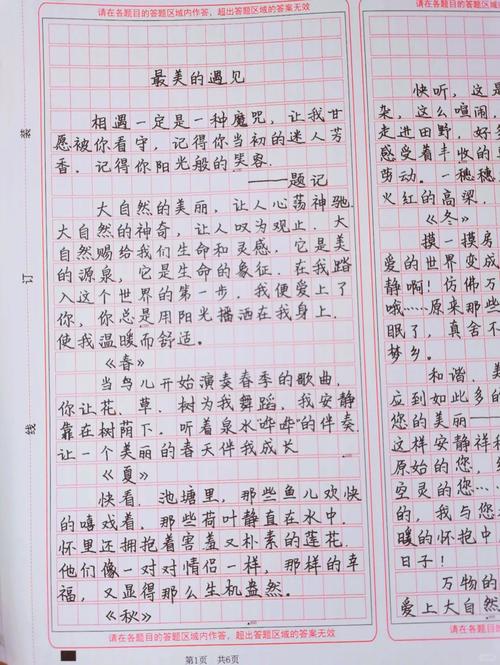 请在各题目的答题区域内作答，超出答题区域的答案无效
最美的遇见
相遇一定是一种魔咒，让我甘
愿被你看守，记得你当初的迷人芳
香．记得你阳光般的笑容．
——题记
大自然的美丽，让人心荡神驰．
大自然的神奇，让人叹为观止．大
自然赐给我们生命和灵感，它是美
的源泉，它是生命的象征．在我踏
入这个世界的第一步．我便爱上了
你，你总是用阳光播洒在我身上．
使我温暖而舒适。
《春》
当鸟儿开始演奏春季的歌曲，
你让花．草．树为我舞蹈，我安静
靠在树荫下．听着泉水"哗哗"的伴奏．
让一个美丽的春天伴我成长
《夏》
快看．池塘里，那些鱼儿欢快
的嘻戏着，那些荷叶静直在水中．
怀里还拥抱着害羞又朴素的莲花．
他们像一对对情侣一样，那样的幸
福，又显得那么生机盎然。
《秋》
请在各题目的答题区域内作答，超出答题区域的答案无效
第1页 共6页
装
订
线
请在各题目的答题区域
快听，这是
杂，这么喧闹．
走进田野，好
感受着丰收的
劳动。一穗穗
火红的高粱．
《冬》
摸一摸房
爱的世界变成
静啊！仿佛万
哦……原来那些
眠了，真舍不
梦乡。
和谐．美
应到如此多的
您的美丽——
这样安静祥和
原始的您，
空灵的您……
的，我与您
暖的怀抱中
日子！
万物的
爱上大自然
请在各题目的答题区